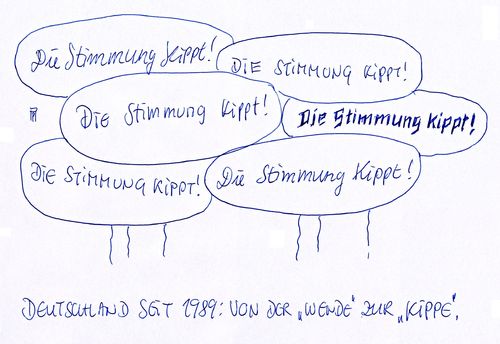 Die Stimmung kippt!
DIE STIMMUNG KIPPT!
DIE Stimmung kippt!
Die Stimmung kippt!
DIE STIMMUNG KIPPT!
Die Stimmung kippt!
DEUTSCHLAND SEIT 1989: VON DER „WENDE" ZUR „KIPPE".